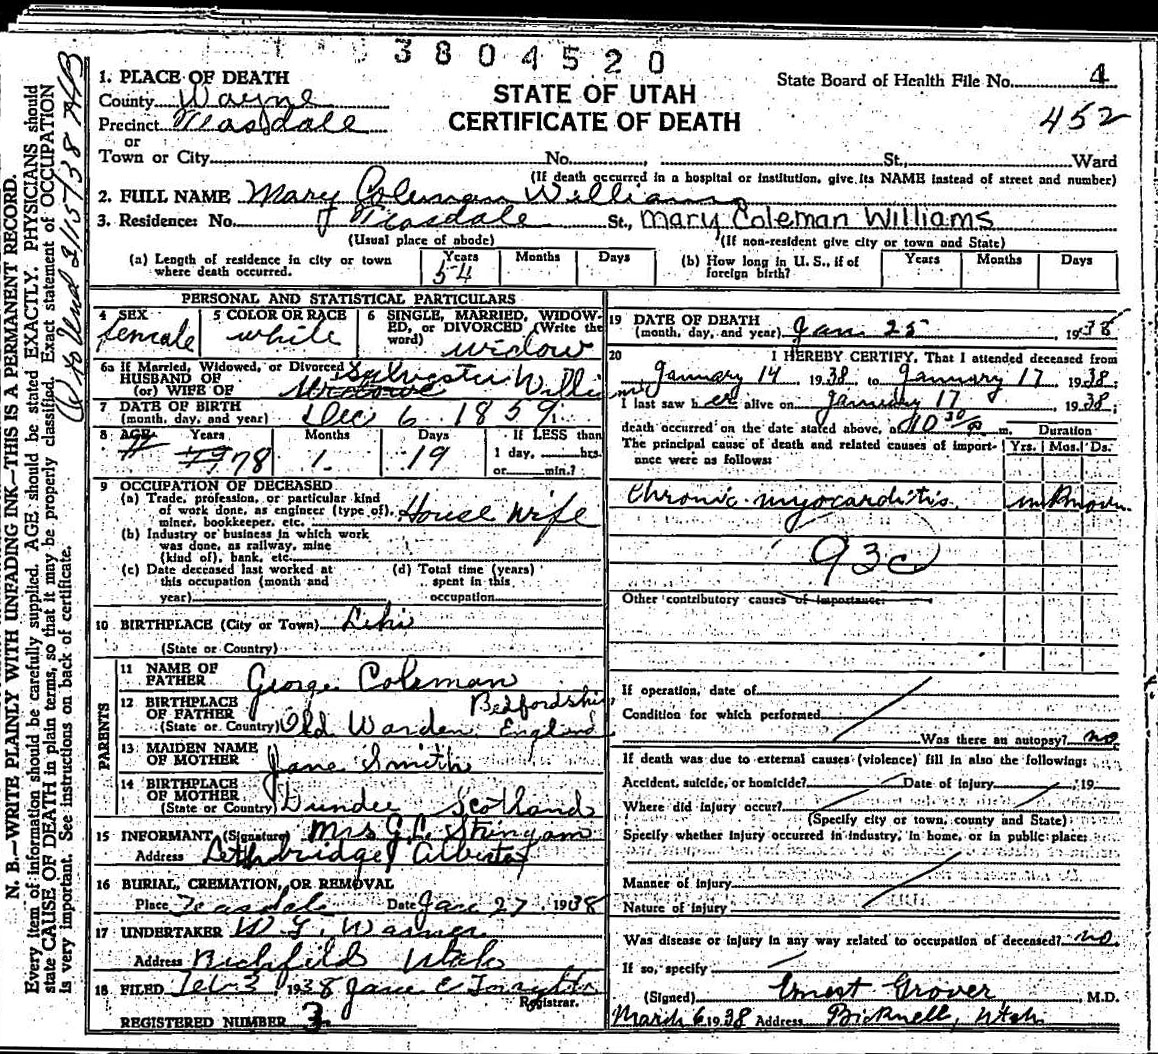 3804520
1. PLACE OF DEATH
County Wayne
Precinct Teasdale
or
Town or City No. , St., Ward
STATE OF UTAH
CERTIFICATE OF DEATH
State Board of Health File No. 4
452
(If death occurred in a hospital or institution, give its NAME instead of street and number)
2. FULL NAME Mary Coleman Williams
3. Residence: No. Teasdale St., Mary Coleman Williams
(Usual place of abode) (If non-resident give city or town and State)
(a) Length of residence in city or town where death occurred. Years 54 Months Days
(b) How long in U. S., if of foreign birth? Years Months Days
PERSONAL AND STATISTICAL PARTICULARS
4 SEX female
5 COLOR OR RACE white
6 SINGLE, MARRIED, WIDOWED, or DIVORCED (Write the word) widow
6a If Married, Widowed, or Divorced
HUSBAND OF Sylvester Willi
(or) WIFE OF
7 DATE OF BIRTH
(month, day, and year) Dec 6 1859
8 AGE Years 78 Months 1 Days 19 If LESS than
1 day, hrs.
or min.?
9 OCCUPATION OF DECEASED
(a) Trade, profession, or particular kind
of work done, as engineer (type of),
miner, bookkeeper, etc. House Wife
(b) Industry or business in which work
was done, as railway, mine
(kind of), bank, etc.
(c) Date deceased last worked at
this occupation (month and
year)
(d) Total time (years)
spent in this
occupation
10 BIRTHPLACE (City or Town) Lehi
(State or Country)
PARENTS
11 NAME OF
FATHER George Coleman
12 BIRTHPLACE Bedfordshire
OF FATHER
(State or Country) Old Warden England
13 MAIDEN NAME
OF MOTHER Jane Smith
14 BIRTHPLACE
OF MOTHER
(State or Country) Dundee Scotland
15 INFORMANT (Signature) Mrs G. L. Stringam
Address Lethbridge Alberta
16 BURIAL, CREMATION, OR REMOVAL
Place Teasdale Date Jan 27, 1938
17 UNDERTAKER
Address Richfield Utah
18 FILED Feb 3 1938 Jane C Forsyth
Registrar.
REGISTERED NUMBER 3
19 DATE OF DEATH
(month, day, and year) Jan 25, 1938
20 I HEREBY CERTIFY, That I attended deceased from
January 14 1938, to January 17 1938;
I last saw h er alive on January 17, 1938;
death occurred on the date stated above, at 10 30 m. Duration
The principal cause of death and related causes of importance were as follows: Yrs. Mos. Ds.
Chronic myocarditis unknown
93c
Other contributory causes of importance:
If operation, date of
Condition for which performed
Was there an autopsy? no
If death was due to external causes (violence) fill in also the following:
Accident, suicide, or homicide? Date of injury , 19
Where did injury occur?
(Specify city or town, county and State)
Specify whether injury occurred in industry, in home, or in public place:
Manner of injury
Nature of injury
Was disease or injury in any way related to occupation of deceased? no
If so, specify
(Signed) Ernest Grover, M.D.
March 6 1938 Address Bicknell, Utah
N. B.—WRITE PLAINLY WITH UNFADING INK—THIS IS A PERMANENT RECORD.
Every item of information should be carefully supplied. AGE should be stated EXACTLY. PHYSICIANS should
state CAUSE OF DEATH in plain terms, so that it may be properly classified. Exact statement of OCCUPATION
is very important. See instructions on back of certificate.